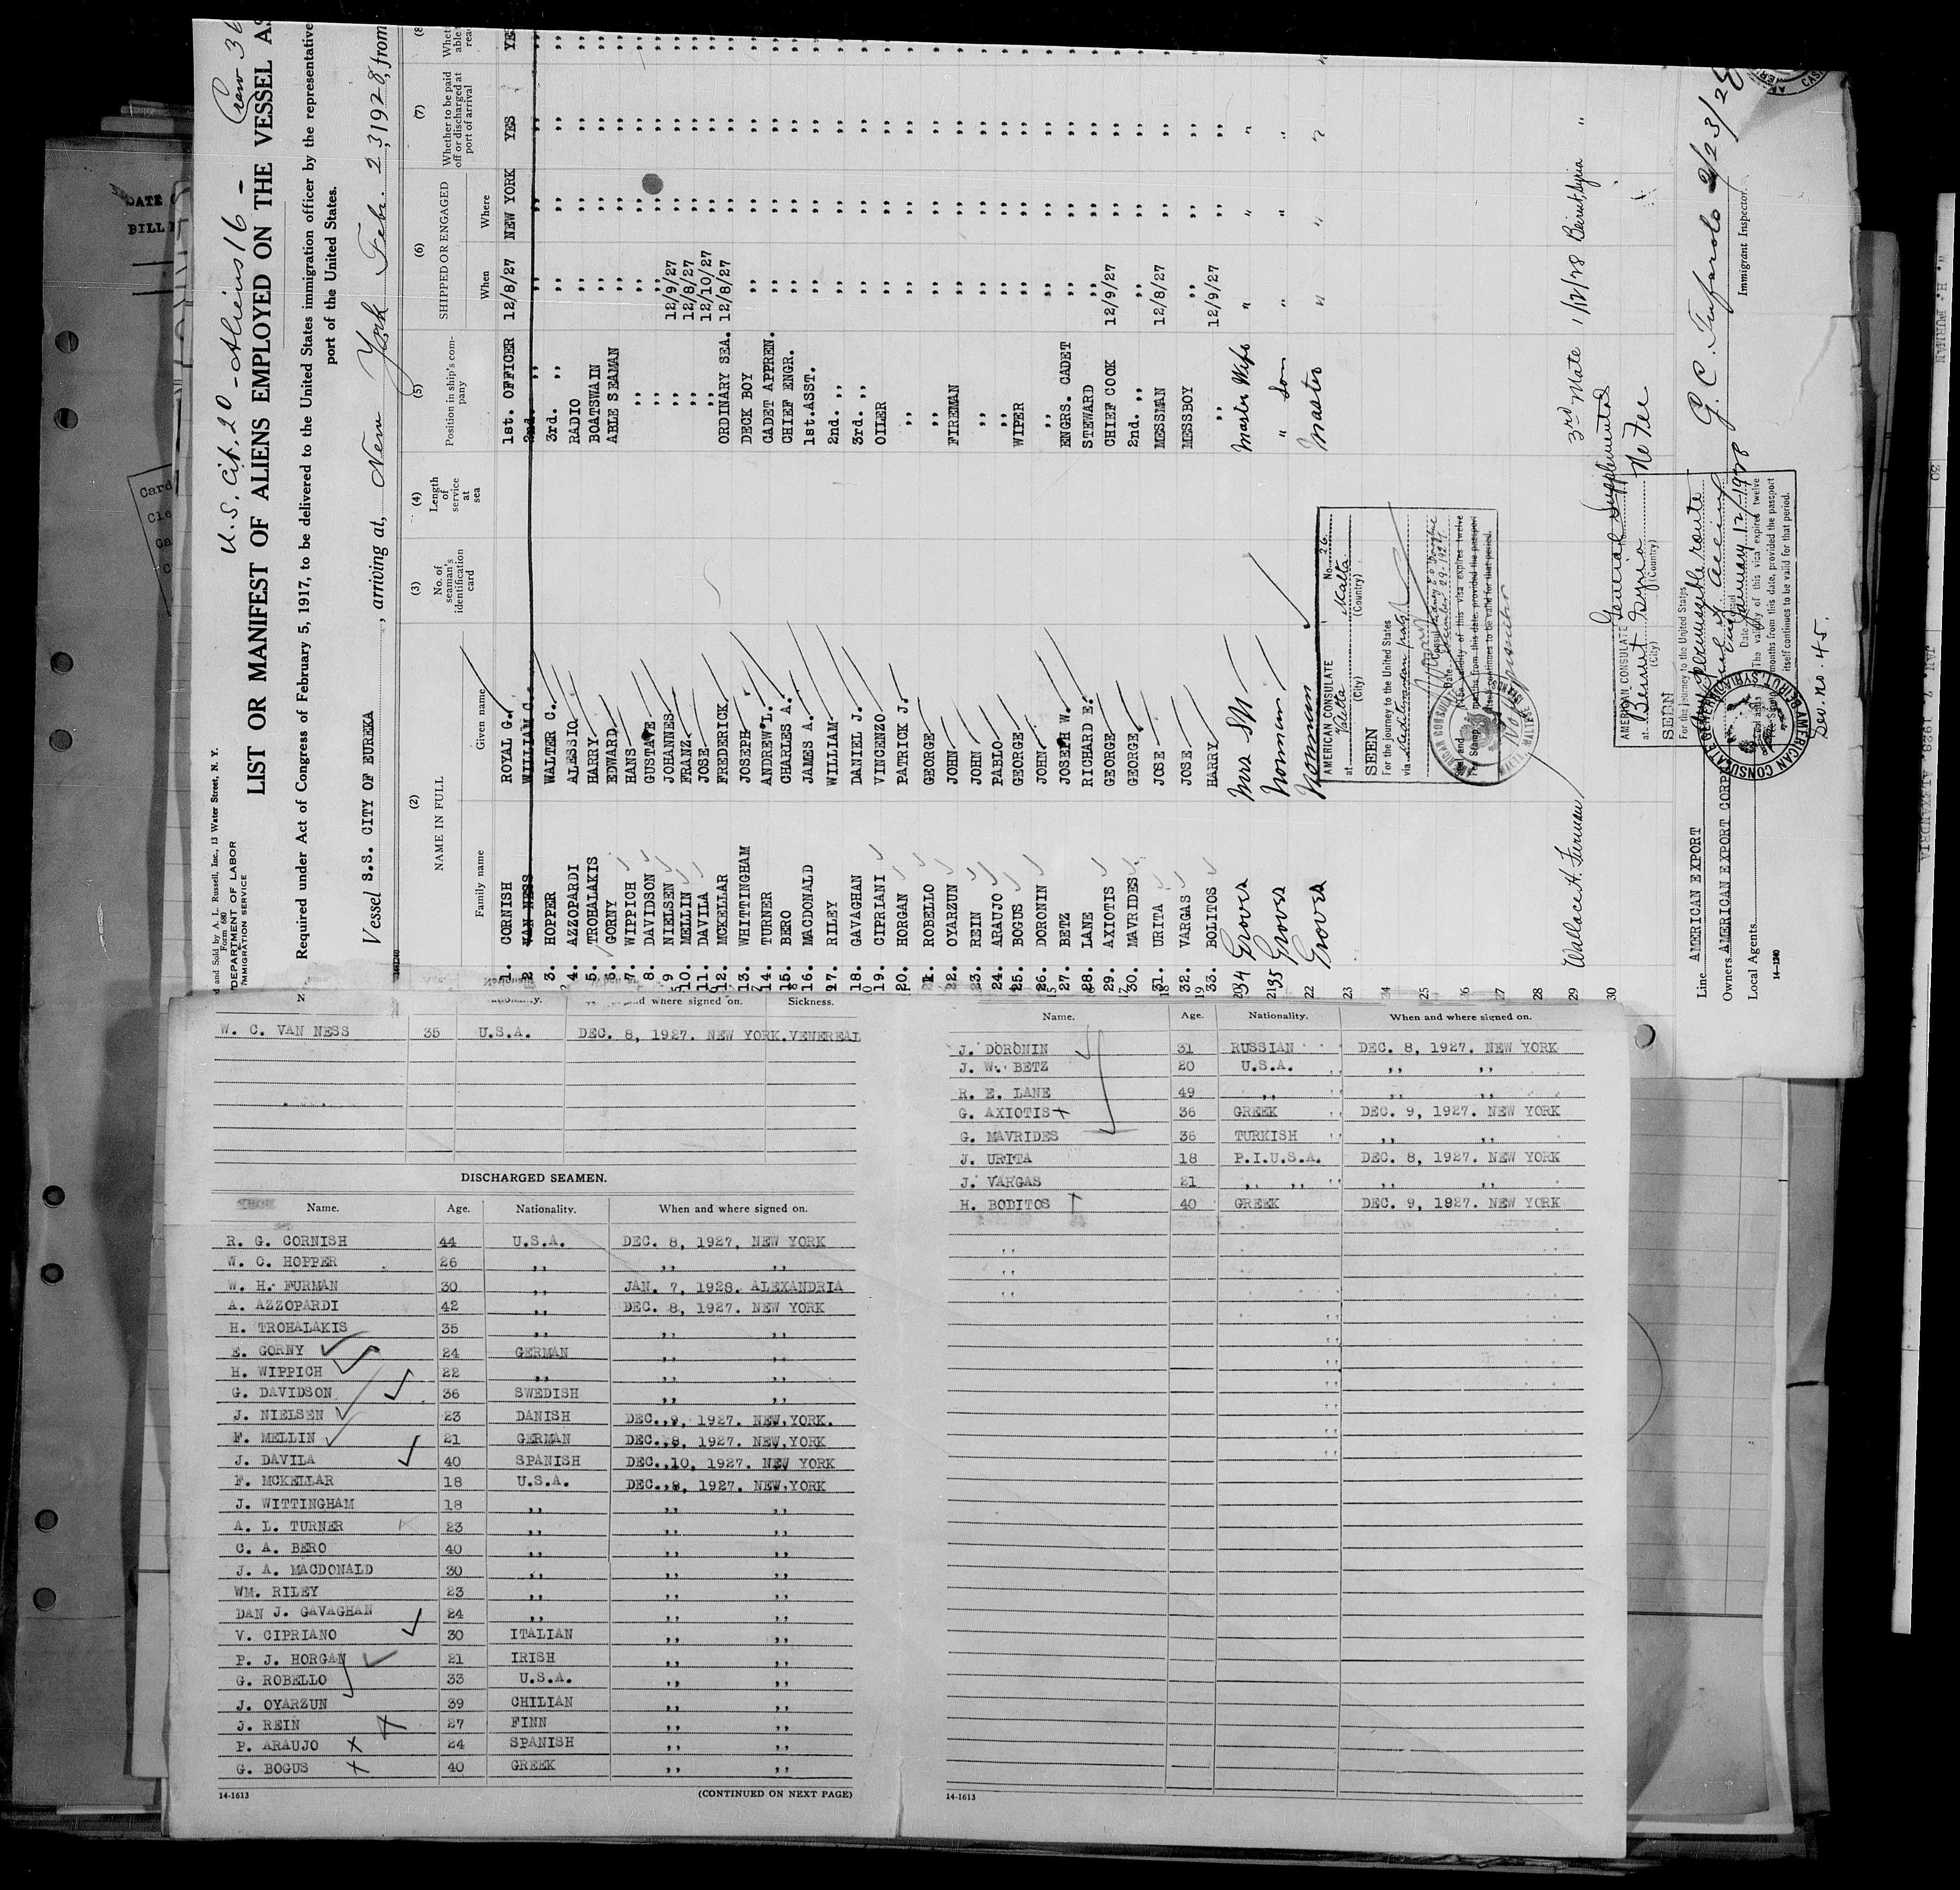 U.S. Cit. 20 - Aliens 16 -
d and Sold by A. L. Russell, Inc., 13 Water Street, N. Y.
Form 680
DEPARTMENT OF LABOR
IMMIGRATION SERVICE
LIST OR MANIFEST OF ALIENS EMPLOYED ON THE VESSEL AS
Required under Act of Congress of February 5, 1917, to be delivered to the United States immigration officer by the representative
port of the United States.
Vessel S.S. CITY OF EUREKA, arriving at, New York Feb. 23 1928, from
(2) (3) (4) (5) (6) (7) (8
NAME IN FULL No. of seaman's identification card Length of service at sea Position in ship's company SHIPPED OR ENGAGED Whether to be paid off or discharged at port of arrival
Family name Given name When Where
1. CORNISH ROYAL G. 1st. OFFICER 12/8/27 NEW YORK YES YES
2. VAN NESS WILLIAM C. 2nd. ,, ,, ,, ,, ,,
3. HOPPER WALTER C. 3rd. ,, ,, ,, ,, ,,
4. AZZOPARDI ALESSIO RADIO ,, ,, ,, ,,
5. TROHALAKIS HARRY BOATSWAIN ,, ,, ,, ,,
6. GORNY EDWARD ABLE SEAMAN ,, ,, ,, ,,
7. WIPPICH HANS ,, ,, ,, ,, ,,
8. DAVIDSON GUSTAVE ,, ,, ,, ,, ,,
9 NIELSEN JOHANNES ,, 12/9/27 ,, ,, ,,
10. MELLIN FRANZ ,, 12/8/27 ,, ,, ,,
11. DAVILA JOSE ,, 12/10/27 ,, ,, ,,
12. MCKELLAR FREDERICK ORDINARY SEA. 12/8/27 ,, ,, ,,
13. WHITTINGHAM JOSEPH DECK BOY ,, ,, ,, ,,
14. TURNER ANDREW L. CADET APPREN. ,, ,, ,, ,,
15. BERO CHARLES A. CHIEF ENGR. ,, ,, ,, ,,
16. MACDONALD JAMES A. 1st. ASST. ,, ,, ,, ,,
17. RILEY WILLIAM 2nd. ,, ,, ,, ,, ,,
18. GAVAGHAN DANIEL J. 3rd. ,, ,, ,, ,, ,,
19. CIPRIANI VINCENZO OILER ,, ,, ,, ,,
20. HORGAN PATRICK J. ,, ,, ,, ,, ,,
21. ROBELLO GEORGE ,, ,, ,, ,, ,,
22. OYARZUN JOHN FIREMAN ,, ,, ,, ,,
23. REIN JOHN ,, ,, ,, ,, ,,
24. ARAUJO PABLO ,, ,, ,, ,, ,,
25. BOGUS GEORGE WIPER ,, ,, ,, ,,
26. DORONIN JOHN ,, ,, ,, ,, ,,
27. BETZ JOSEPH W. ENGRS. CADET ,, ,, ,, ,,
28. LANE RICHARD E. STEWARD ,, ,, ,, ,,
29. AXIOTIS GEORGE CHIEF COOK 12/9/27 ,, ,, ,,
30. MAVRIDES GEORGE 2nd. ,, ,, ,, ,, ,,
31. URITA JOSE MESSMAN 12/8/27 ,, ,, ,,
32. VARGAS JOSE MESSBOY ,, ,, ,, ,,
33. BOLITOS HARRY ,, 12/9/27 ,, ,, ,,
34 Grover Mrs Master Wife " " "
35 Grover Norman " Son " " "
Grover Norman Master " " "
Wallace H. Furman 3rd Mate 1/12/28 Beirut, Syria "
AMERICAN CONSULATE No. 26
at Valetta Malta
(City) (Country)
SEEN
For the journey to the United States
via Mediterranean ports
The validity of this visa expires twelve
months from this date, provided the passport
itself continues to be valid for that period.
AMERICAN CONSULATE General Supplemental
at Beirut Syria No Fee
(City) (Country)
SEEN
For the journey to the United States
January 12/1928
The validity of this visa expires twelve
months from this date, provided the passport
itself continues to be valid for that period.
AMERICAN CONSULATE GENERAL BEIRUT, SYRIA
Ser. no. 45.
Line AMERICAN EXPORT
Owners AMERICAN EXPORT CORP.
Local Agents
14-1240
2/23/28
Immigrant Inspector.
W. H. FURMAN 30 JAN. 7, 1928. ALEXANDRIA
nd where signed on. Sickness.
W. C. VAN NESS 35 U.S.A. DEC. 8, 1927. NEW YORK. VENEREAL
DISCHARGED SEAMEN.
Name. Age. Nationality. When and where signed on.
R. G. CORNISH 44 U.S.A. DEC. 8, 1927, NEW YORK
W. C. HOPPER 26 ,, ,, ,,
W. H. FURMAN 30 ,, JAN. 7, 1928. ALEXANDRIA
A. AZZOPARDI 42 ,, DEC. 8, 1927. NEW YORK
H. TROHALAKIS 35 ,, ,, ,,
E. GORNY 24 GERMAN ,, ,,
H. WIPPICH 22 ,, ,, ,,
G. DAVIDSON 36 SWEDISH ,, ,,
J. NIELSEN 23 DANISH DEC. 9, 1927. NEW YORK.
F. MELLIN 21 GERMAN DEC. 8, 1927. NEW YORK
J. DAVILA 40 SPANISH DEC. 10, 1927. NEW YORK
F. MCKELLAR 18 U.S.A. DEC. 8, 1927. NEW YORK
J. WITTINGHAM 18 ,, ,, ,,
A. L. TURNER 23 ,, ,, ,,
C. A. BERO 40 ,, ,, ,,
J. A. MACDONALD 30 ,, ,, ,,
WM. RILEY 23 ,, ,, ,,
DAN J. GAVAGHAN 24 ,, ,, ,,
V. CIPRIANO 30 ITALIAN ,, ,,
P. J. HORGAN 21 IRISH ,, ,,
G. ROBELLO 33 U.S.A. ,, ,,
J. OYARZUN 39 CHILIAN ,, ,,
J. REIN 27 FINN ,, ,,
P. ARAUJO 24 SPANISH ,, ,,
G. BOGUS 40 GREEK ,, ,,
14-1613 (CONTINUED ON NEXT PAGE)
Name. Age. Nationality. When and where signed on.
J. DORONIN 31 RUSSIAN DEC. 8, 1927. NEW YORK
J. W. BETZ 20 U.S.A. ,, ,,
R. E. LANE 49 ,, ,, ,,
G. AXIOTIS 36 GREEK DEC. 9, 1927. NEW YORK
G. MAVRIDES 36 TURKISH ,, ,,
J. URITA 18 P.I.U.S.A. DEC. 8, 1927. NEW YORK
J. VARGAS 21 ,, ,, ,, ,,
H. BOBITOS 40 GREEK DEC. 9, 1927. NEW YORK
14-1613